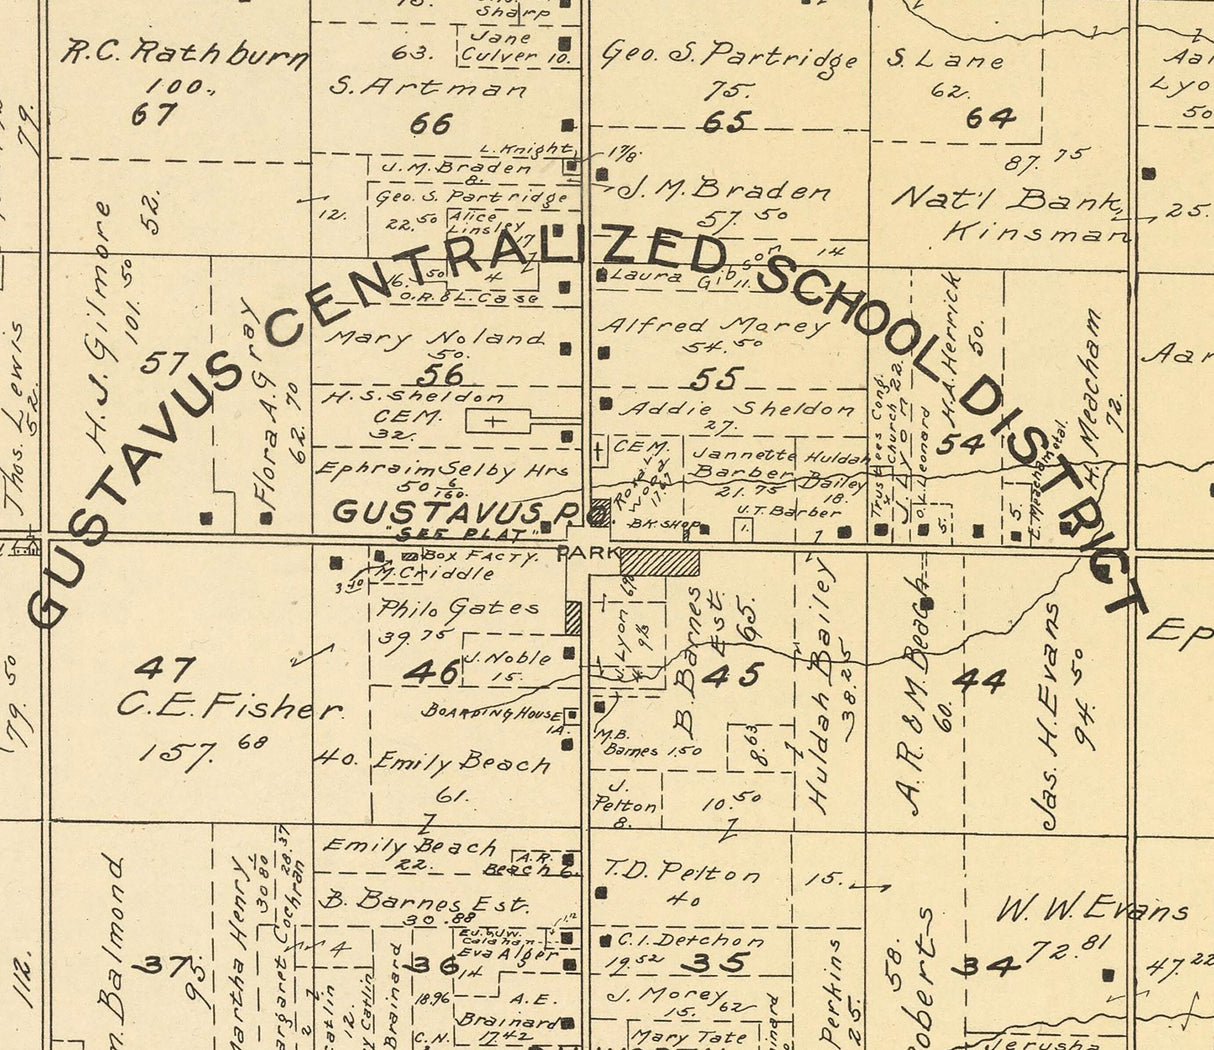 Sharp
R.C. Rathburn
100.
67
63.
Jane
Culver 10.
S. Artman
66
Geo. S. Partridge
75.
65
S. Lane
62.
64
Lyo
50
79.
L. Knight
1 7/8
J.M. Braden
8.
Geo. S. Partridge
22.50
Alice
Linsley
17
12.
J. M. Braden
57.50
87.75
Nat'l Bank,
Kinsman
25.
14
H. J. Gilmore
101.50
52.
57
Flora A. Gray
62.70
GUSTAVUS CENTRALIZED SCHOOL DISTRICT
4
O.R. & L. Case
Mary Noland
50.
56
H. S. Sheldon
CEM.
32.
Ephraim Selby Hrs
50 6/160
Laura Gibson
11.
Alfred Morey
54.50
55
Addie Sheldon
27.
CEM.
Royal M.
Wood
17.67
Jannette
Barber
21.75
Huldah
Bailey
18.
U.T. Barber
1.
B.K. SHOP
Trustees Cong.
Church 22.
J. Lyon
O.L. Leonard
5.
H. A. Herrick
50.
54
E. Meacham etal.
5.
H. Meacham
72.
Aar
Thos. Lewis
52.
GUSTAVUS P.O.
"SEE PLAT"
PARK
BOX FACTY.
M. Criddle
3 40
Philo Gates
39.75
46
J. Noble
15.
BOARDING HOUSE
1A.
40.
Emily Beach
61.
47
C. E. Fisher
157.68
79.50
J. Lyon
9 2/3
B. Barnes
Est.
65.
45
M.B.
Barnes 1.50
8.63
J.
Pelton
8.
10.50
Huldah Bailey
38.25
A. R. & M. Beach
60.
44
Jas. H. Evans
94.50
Ep
Emily Beach
22.
A.R.
Beach 6.
B. Barnes Est.
30.88
Calahan
Eva Alger
14
36
18.96
A. E.
Brainard
17.42
C.N.
Brainard
4
12.
Catlin
Balmond
37
95.
112.
Martha Henry
30.80
Margaret Cochran
28.37
T. D. Pelton
40
15.
C. I. Detchon
19.52
35
J. Morey
15.
62
Mary Tate
Perkins
25.
Roberts
58.
W. W. Evans
72.81
34
47.22
Jerusha